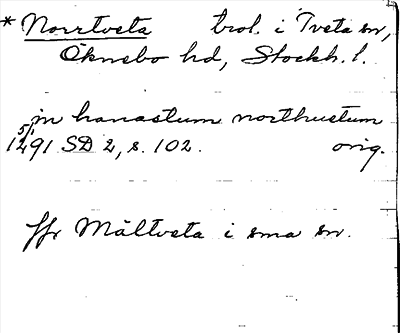 * Norrtveta trol. i Tveta sn,
Öknebo hd, Stockh. l.
in hanastum northustum
5/1 1291 SD 2, s. 102. orig.
Jfr Mältveta i sma sn.